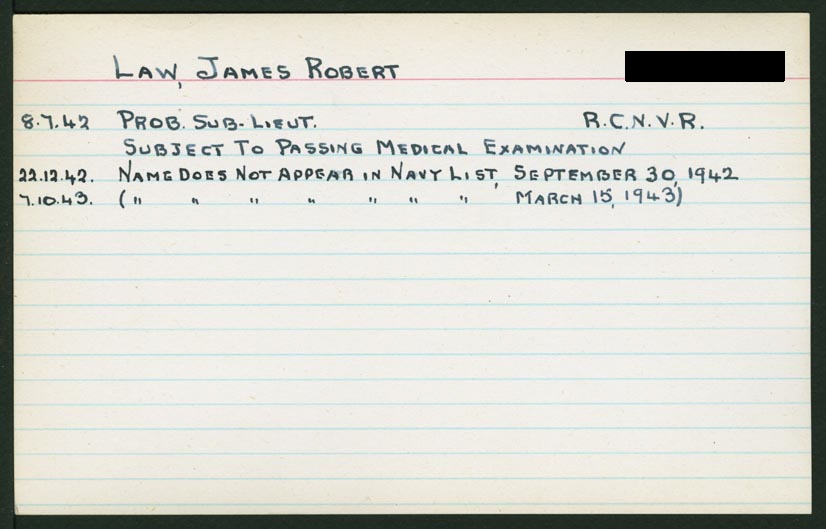 LAW, JAMES ROBERT
8.7.42 PROB. SUB-LIEUT. R.C.N.V.R.
SUBJECT TO PASSING MEDICAL EXAMINATION
22.12.42. NAME DOES NOT APPEAR IN NAVY LIST, SEPTEMBER 30, 1942
7.10.43. (" " " " " " " MARCH 15, 1943)